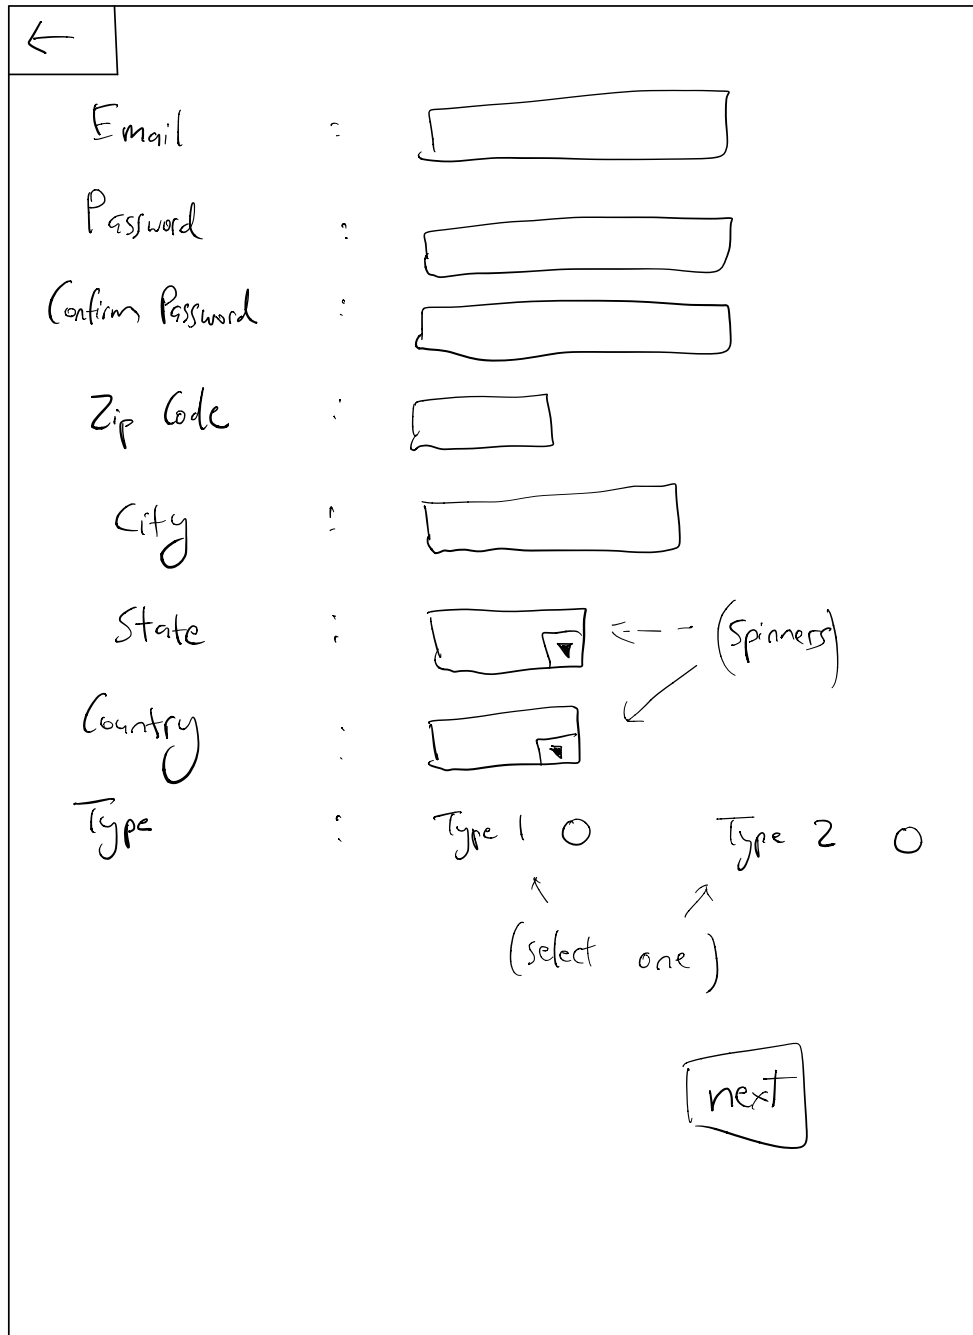 Email :
Password :
Confirm Password :
Zip Code :
City :
State : (Spinners)
Country :
Type : Type 1 Type 2
(select one)
next